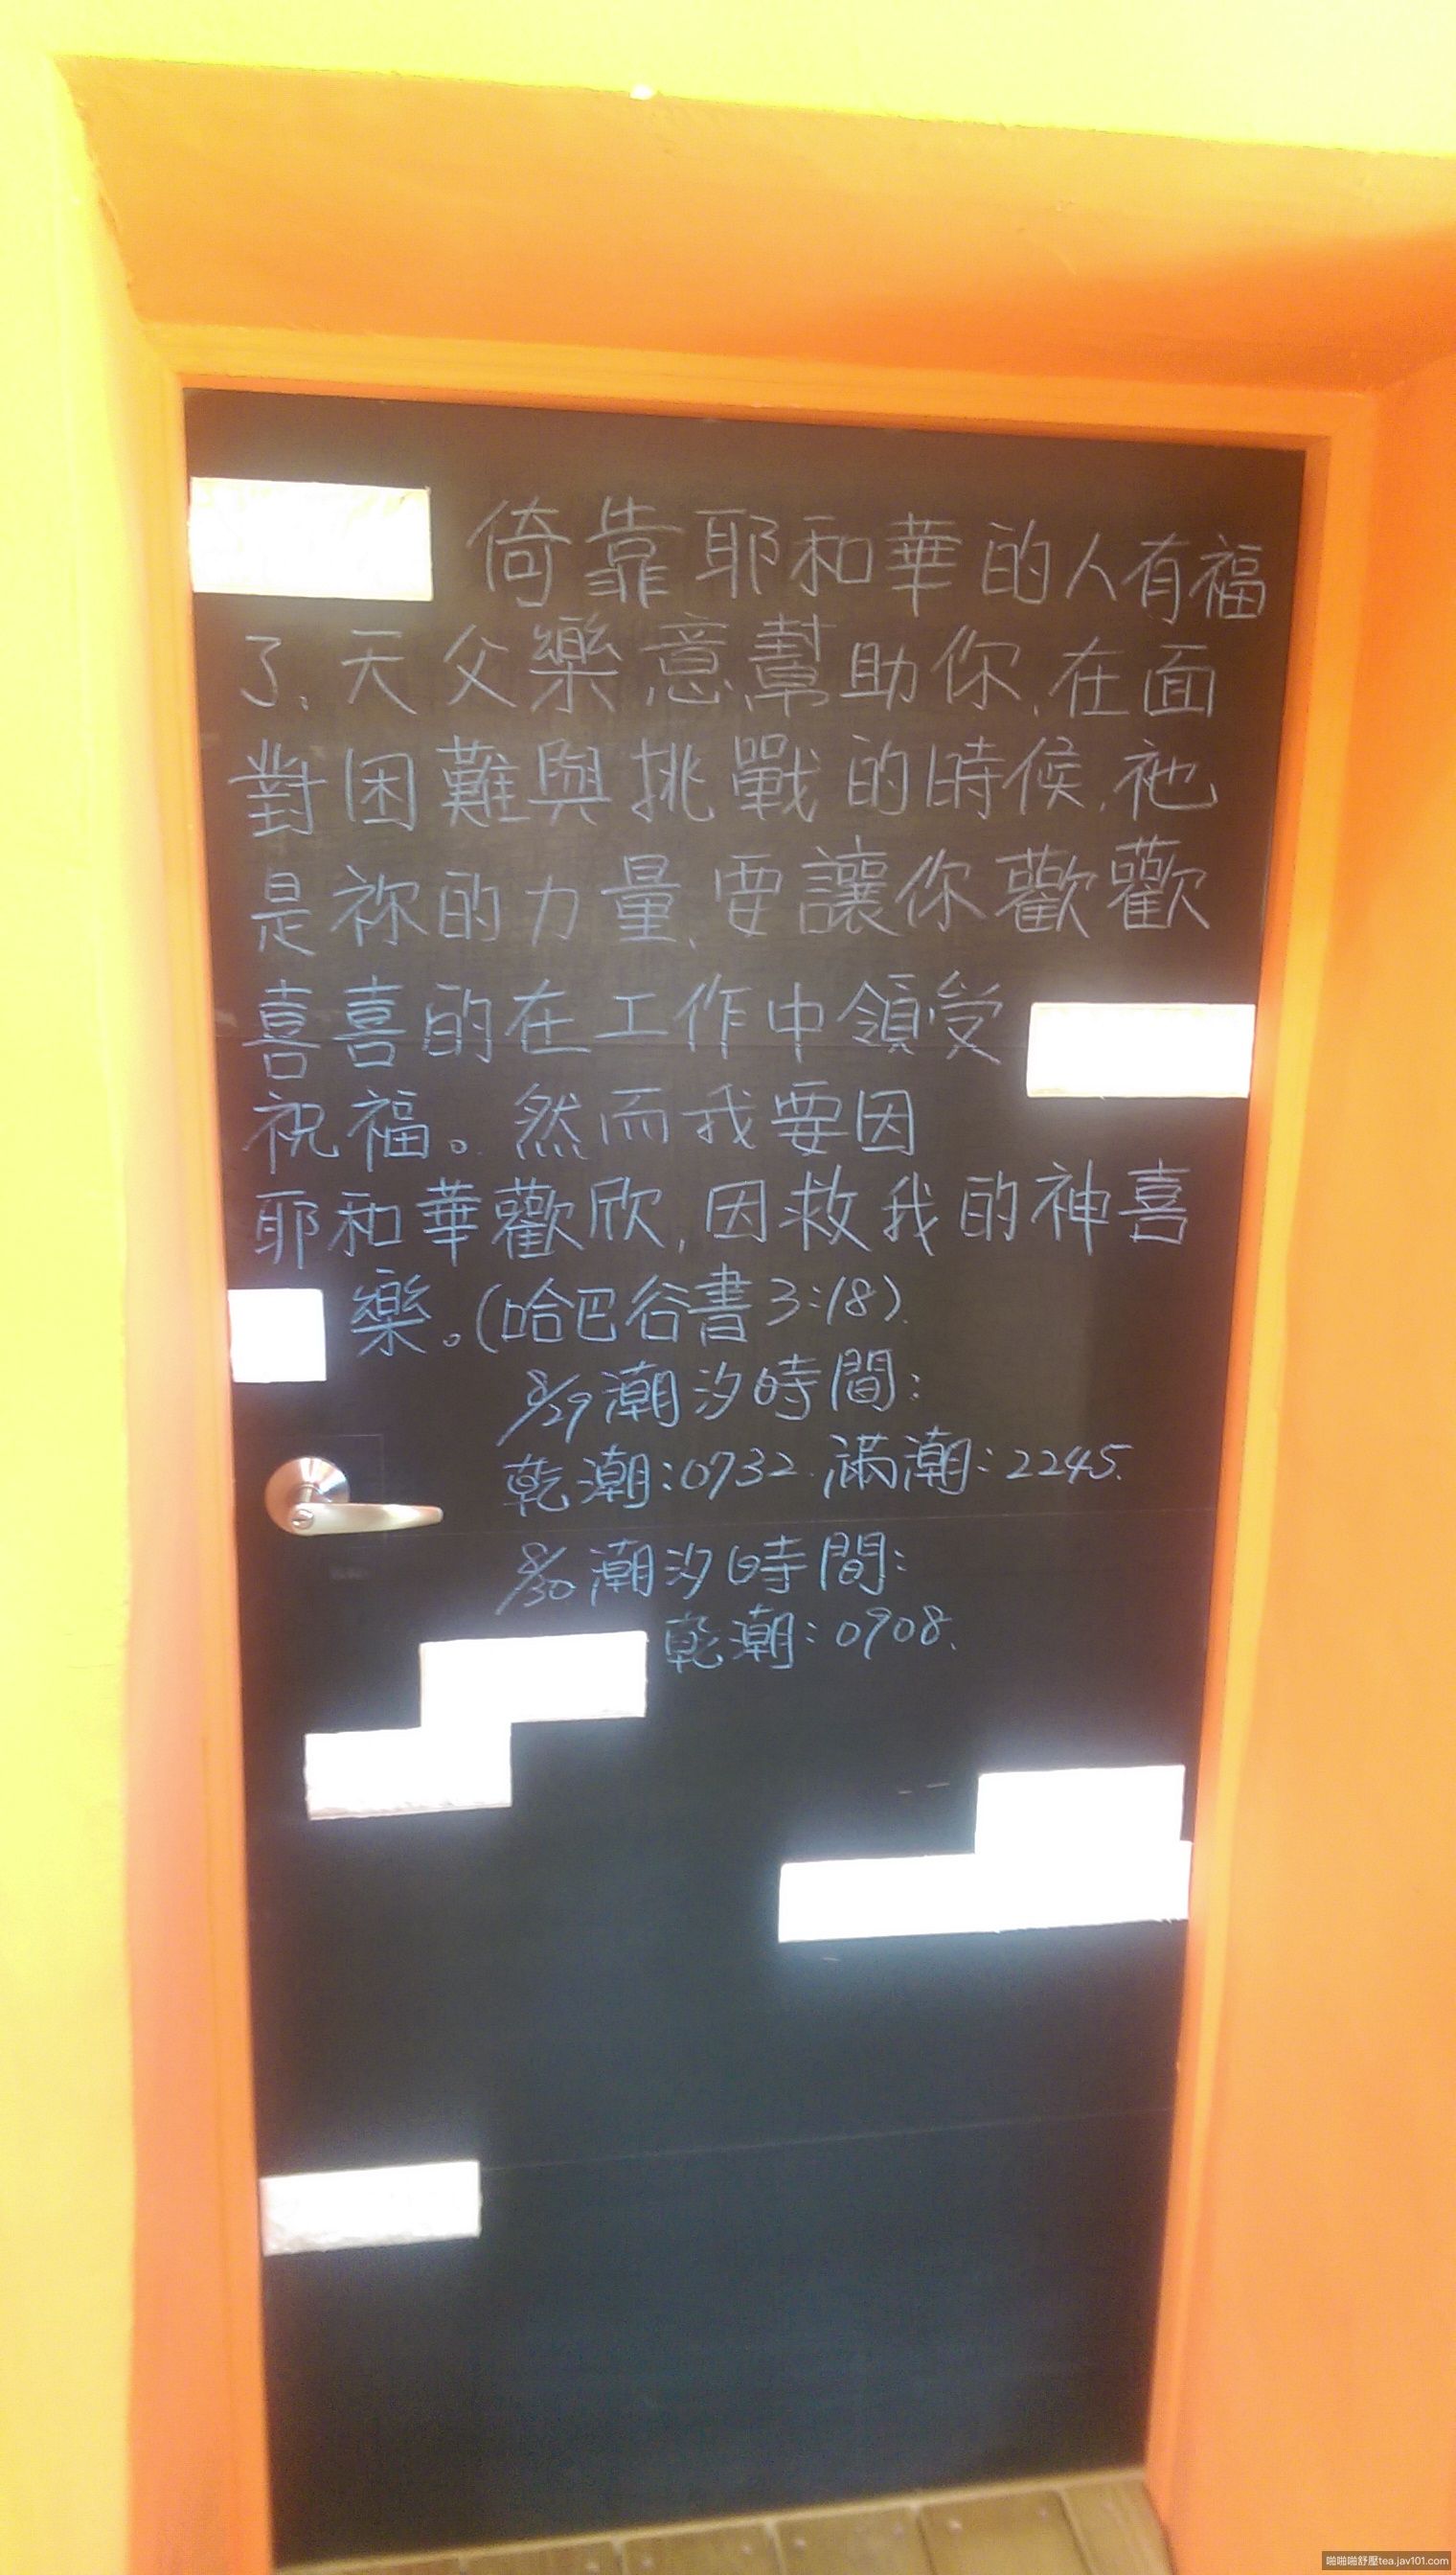 倚靠耶和華的人有福
了、天父樂意幫助你、在面
對困難與挑戰的時候、祂
是祢的力量、要讓你歡歡
喜喜的在工作中領受
祝福。然而我要因
耶和華歡欣,因救我的神喜
樂。(哈巴谷書3:18).
8/29潮汐時間:
乾潮:0732.滿潮:2245.
8/30潮汐時間:
乾潮:0908.
啪啪啪舒壓tea.jav101.com